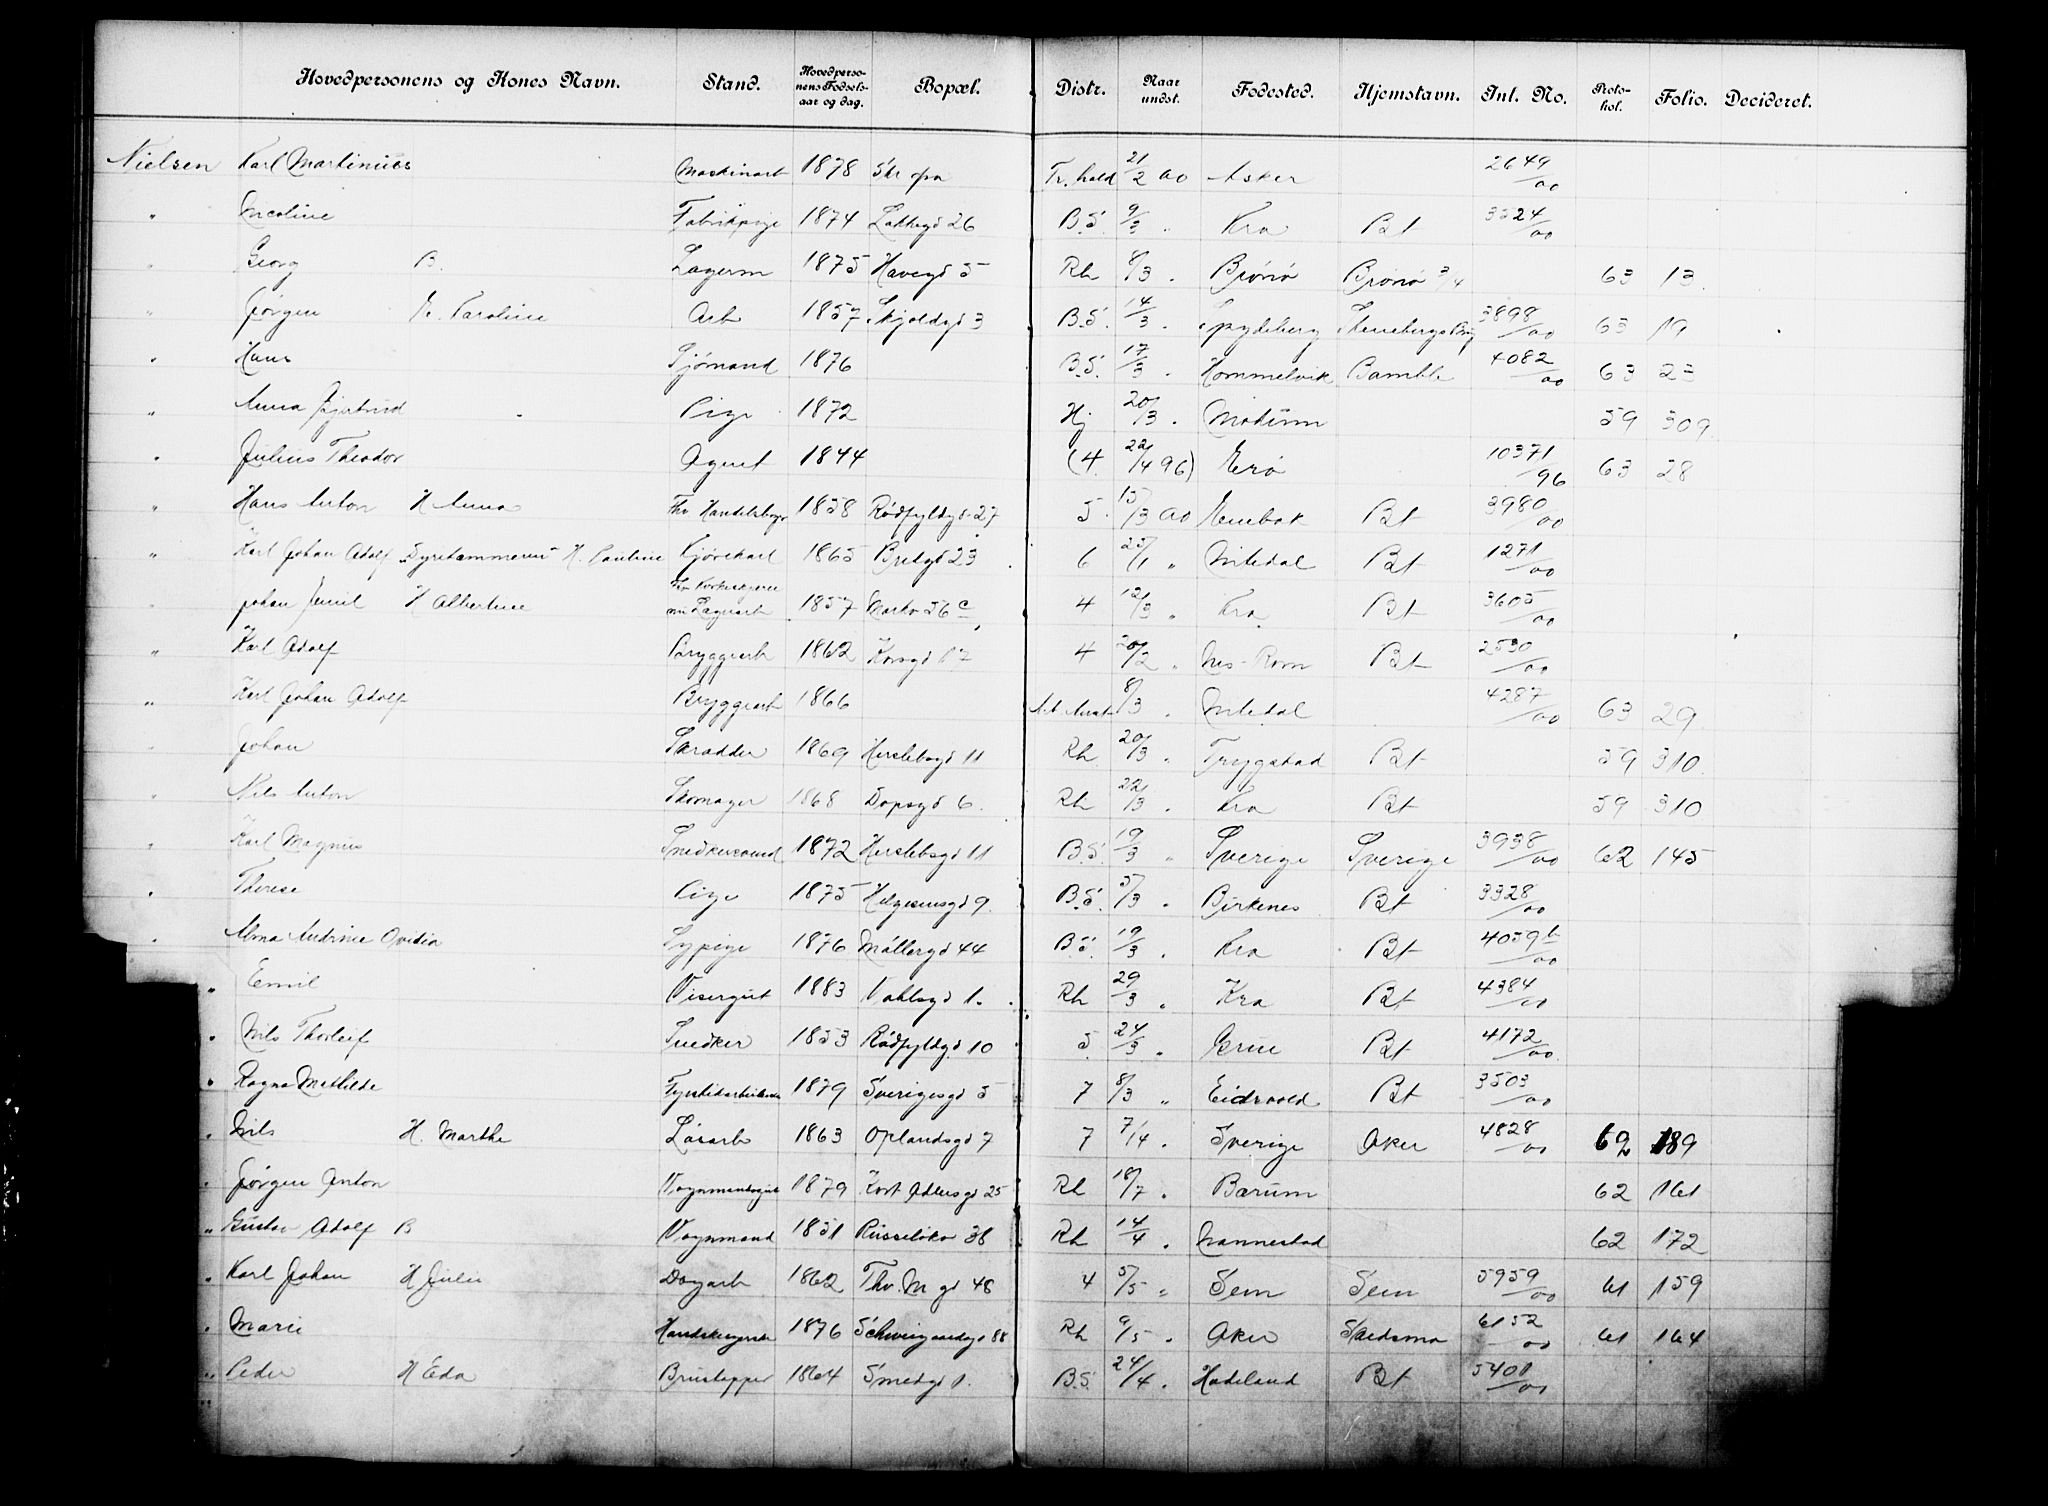 Hovedpersonens og Kones Navn. Stand. Hovedperso-nens Fødsels-aar og dag. Bopæl. Distr. Naar undst. Fødested. Hjemstavn. Int. No. Proto-kol. Folio. Decideret.
Nielsen Karl Martinius Maskinarb 1878 Skr pa Tr. hold 21/2 00 Asker 2649/00
" Nicoline Fabrikpige 1874 Lakkegd 26 B.S. 9/3 " Kra Bt 3524/00
" Georg B. Lagerm 1875 Havegd 5 Rh 8/3 " Brönö Brönö 3/4 63 13
" Jørgen E. Karoline Arb 1857 Skjoldgd 3 B.S. 14/3 " Spydeberg 3898/00 63 19
" Hans Sjömand 1876 B.S. 17/3 " Hommelvik Bamble 4082/00 63 23
" Anna Gjertrud Pige 1872 Hj 20/3 " Modum 59 309
" Julius Theodor Agent 1844 (4. 22/4 96) Erö 10371/96 63 28
" Hans Anton H Anna Fhv Handelsbogh 1858 Rödfyldgd 27 5 15/3 00 Enebak Bt 3980/00
" Karl Johan Adolf H. Pauline Kjörekarl 1865 Bredgd 23 6 25/1 " Nitedal Bt 1271/00
" Johan Emil H Albertine nu Lagerarb 1857 Markv 56 c 4 12/3 " Kra Bt 3605/00
" Karl Adolf Bryggearb 1862 Korsgd 17 4 20/2 " Nes-Rom Bt 2530/00
" Karl Johan Adolf Bryggearb 1866 8/3 " Nitedal 4287/00 63 29
" Johan Skrædder 1869 Herslebsgd 11 Rh 20/3 " Trygstad Bt 59 310
" Nils Anton Skomager 1868 Dopsgd 6 Rh 22/3 " Kra Bt 59 310
" Karl Magnus Snedkersvend 1872 Herslebsgd 11 B.S. 19/3 " Sverige Sverige 3938/00 62 145
" Therese Pige 1875 Helgesensgd 9 B.S. 5/3 " Birkenes Bt 3328/00
" Alma Andrine Ovidia Sypige 1876 Möllergd 44 B.S. 19/3 " Kra Bt 4059 b/00
" Emil Visergut 1883 Vahlsgd 1. Rh 29/3 " Kra Bt 4384/00
" Nils Thorleif Snedker 1853 Rödfyldgd 10 5 24/3 " Grue Bt 4172/00
" Ragna Mathilde Fyrstikarbeiderske 1879 Sverigesgd 5 7 8/3 " Eidsvold Bt 3503/00
" Nils H. Marthe Lösarb 1863 Oplandsgd 7 7 7/4 " Sverige Aker 4828/00 62 189
" Jörgen Anton Vognmandsgut 1879 Kort Adlersgd 25 Rh 18/7 " Bærum 62 161
" Gustav Adolf B Vognmand 1851 Russelökv 38 Rh 14/4 " Nannestad 62 172
" Karl Johan H Julie Dagarb 1862 Thv. M gd 48 4 5/5 " Sem Sem 5959/00 61 159
" Marie Handskesyerske 1876 Schweigaardsgd 88 Rh 9/5 " Aker Skedsmo 6152/00 61 164
" Peder H Eda Brustapper 1864 Smedgd 1. B.S. 24/4 " Hadeland Bt 5401/00